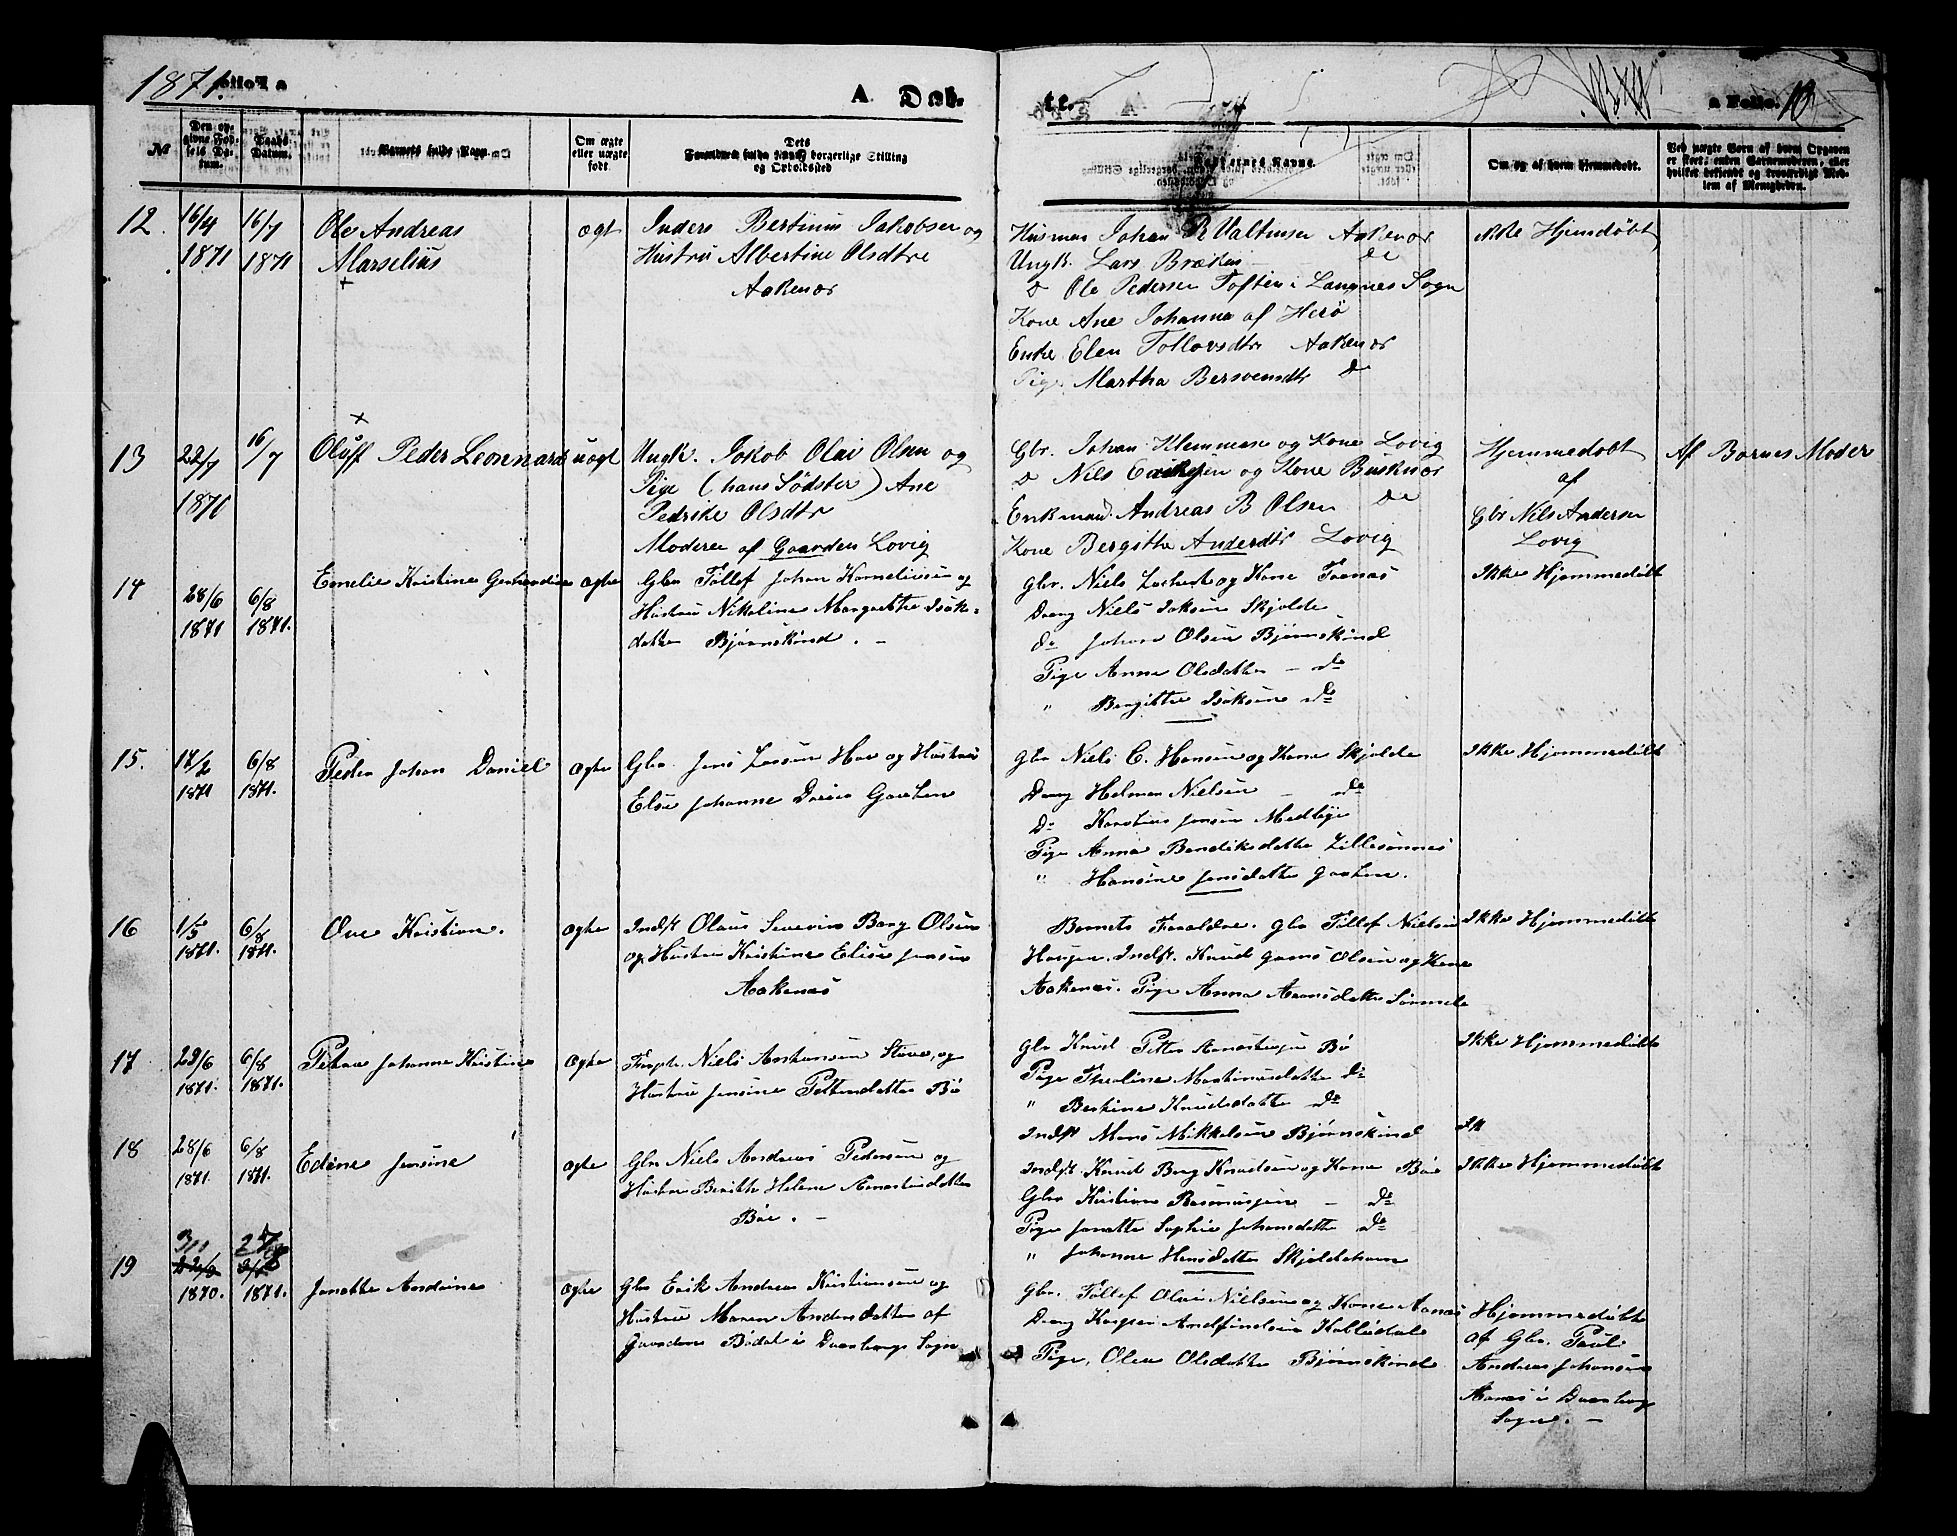 1871.
A Døb-
te.
a Folio.
No
Den op-
givne Fød-
sels Da-
tum.
Daabs-
Datum.
Barnets fulde Navn.
Om ægte
eller uægte
født.
Dets
Forældres fulde Navn, borgerlige Stilling
og Opholdssted
Faddernes Navne.
Om og af hvem hjemmedøbt.
Ved uægte Børn af hvem Opgaven
er skeet: enten Barnemoderen, eller
hvilket bekjendt og troværdigt Med-
lem af Menigheden.
12. 16/4 1871 16/7 1871 Ole Andreas
Marselius
ægt
Inders Bertinus Jakobsen og
Hustru Albertine Olsdtr
Aakenæs
Husman Johan R Valtinsen Aakenæs
Ungk. Lars Bræken do
D Ole Pedersen Toften i Langnes Sogn
Kone Ane Johanna af Herø
Enke Elen Tollovsdtr Aakenæs
Pige Martha Bersvensdtr do
ikke Hjemdøbt
13 22/7 1870 16/7 Oluff Peder Leonnard uægt
Ungk. Jakob Olai Olsen og
Pige (hans Sødster) Ane
Pedrike Olsdtr
Moderen af Gaarden Lovig
Gbr. Johan Klemmese og Kone Lovig
D Nils og Kone Busknæs
Enkmand Andreas B Olsen do
Kone Bergitha Andersdtr Lovig
Hjemmedøbt
af
Gbr Nils Andersen
Lovig
Af Barnes Moder
14 28/6 1871 6/8 1871. Emelie Kristine Gerhardine ægte
Gbr Tollef Johan Korneliussen og
Hustru Nikoline Margrethe Isak-
datter Bjørnskind. -
Gbr. Niels og Kone Frenæs
Dreng Niels Isaksen Skjolde
do Johan Olsen Bjørnskind
Pige Anne Olsdatter - do
" Bergitte Isaksen do
Ikke Hjemmedøbt
15. 17/2 1871 6/8 1871. Peder Johan Daniel ægte
Gbr. Jens Larsen Hov og Hustru
Else Johanne Dorea Gaasten
Gbr Niels C. Hansen og Kone Skjolde
Dreng Helmer Nielsen - do
Do Karolius Jensen Medbye
Pige Anna Bendiksdatter
" Hansine Jensdatter
Ikke Hjemmedøbt
16 1/5 1871. 6/8 1871. Ove Kristian. ægte
Indst Olaus Severin Berg Olsen
og Hustru Kristine Elise Jensen
Aakenæs
Barnets Forældre. Gbr Tollef Nielsen
Haugen. Indst. Knud Olsen og Kone
Aakenæs. Pige Anna Arensdatter
Ikke Hjemmedøbt
17 29/6 1871. 6/8 1871. Petra Johanne Kristine ægte
Niels Antonsen Stave, og
Hustru Jensine Pettersdatter Bø
Gbr Knud Petter Bø
Pige Theoline Martinusdatter do
" Bertine Knudsdatter do
Indst Mons Mikkelsen Bjørnskind
Ikke Hjemmedøbt
Ik
18 28/6 1871. 6/8 1871. Edine Jensine ægte
Gbr Niels Andreas Pedersen og
Hustru Berith Helene
Bøe. -
Indst. Knud Berg Knudsen og Kone Bøe
Gbr Kristian Rasmussen - do
Pige Janette Sophie Johansdatter do
" Johanne Hansdatter Skjoldehavn
Ikke Hjemmedøbt
19 1870. 1871. Janette Andrine ægte
Gbr Erik Andreas Kristiansen og
Hustru Maren Andersdatter af
Gaarden Bødal i Dverberg Sogn
Gbr. Tollef Olai Nielsen og Kone Aanæs
Dreng Kasper Andfindsen
Pige, Olea Olsdatter Bjørnskind
Hjemmedøbt
af Gbr. Paul
Andreas Johansen
Aanæs i Dverberg
Sogn. -